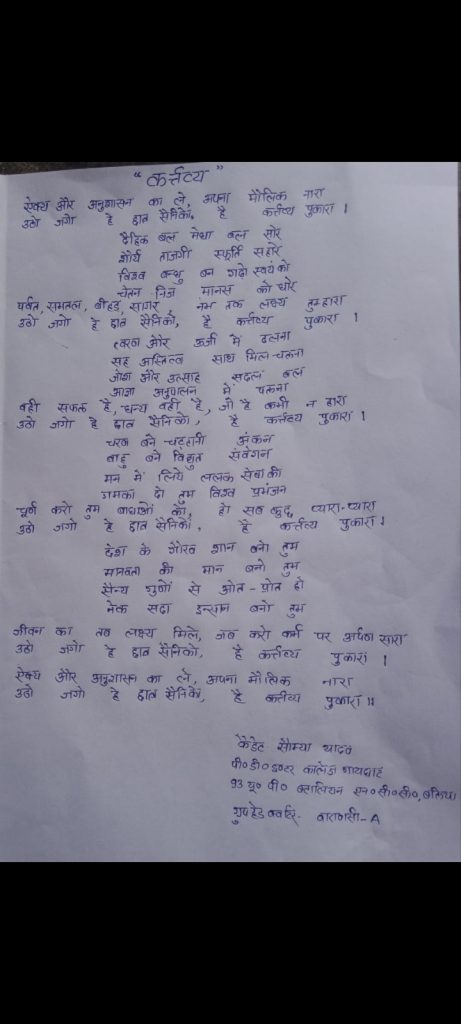 "कर्त्तव्य"
ऐक्य और अनुशासन का ले, अपना मौलिक नारा
उठो जगो हे छात्र सैनिकों, है कर्त्तव्य पुकारा ।
दैहिक बल मेधा बल सारे
शौर्य ताजगी स्फूर्ति सहारे
विश्व बन्धु बन गढ़ो स्वयं को
चेतन निज मानस को धारे
पर्वत, समतल, बीहड़, सागर नभ तक लक्ष्य तुम्हारा
उठो जगो हे छात्र सैनिकों, है कर्त्तव्य पुकारा ।
त्वरा और ऊर्जा में ढलना
सह अस्तित्व साध मिल चलना
जोश और उत्साह सदल बल
आज्ञा अनुपालन में पलना
वही सफल है, धन्य वही है, जो है कभी न हारा
उठो जगो हे छात्र सैनिकों, है कर्त्तव्य पुकारा ।
चरण बने चट्टानी अंकन
बाहु बने विद्युत संवेगन
मन में लिये ललक सेवा की
तुम विश्व प्रभंजन
चूर्ण करो तुम बाधाओं को, हो सब कुछ प्यारा-प्यारा
उठो जगो हे छात्र सैनिकों, है कर्त्तव्य पुकारा ।
देश के गौरव शान बनो तुम
मानवता की मान बनो तुम
सैन्य गुणों से ओत-प्रोत हो
नेक सदा इन्सान बनो तुम
जीवन का तब लक्ष्य मिले, जब करो कर्म पर अर्पण सारा
उठो जगो हे छात्र सैनिकों, है कर्त्तव्य पुकारा ।
ऐक्य और अनुशासन का ले, अपना मौलिक नारा
उठो जगो हे छात्र सैनिकों, है कर्त्तव्य पुकारा ॥
कैडेट सौम्या यादव
पी०डी० इण्टर कालेज गायघाट
93 यू० पी० बटालियन एन०सी०सी०, बलिया
ग्रुप हेड क्वार्टर- वाराणसी-A